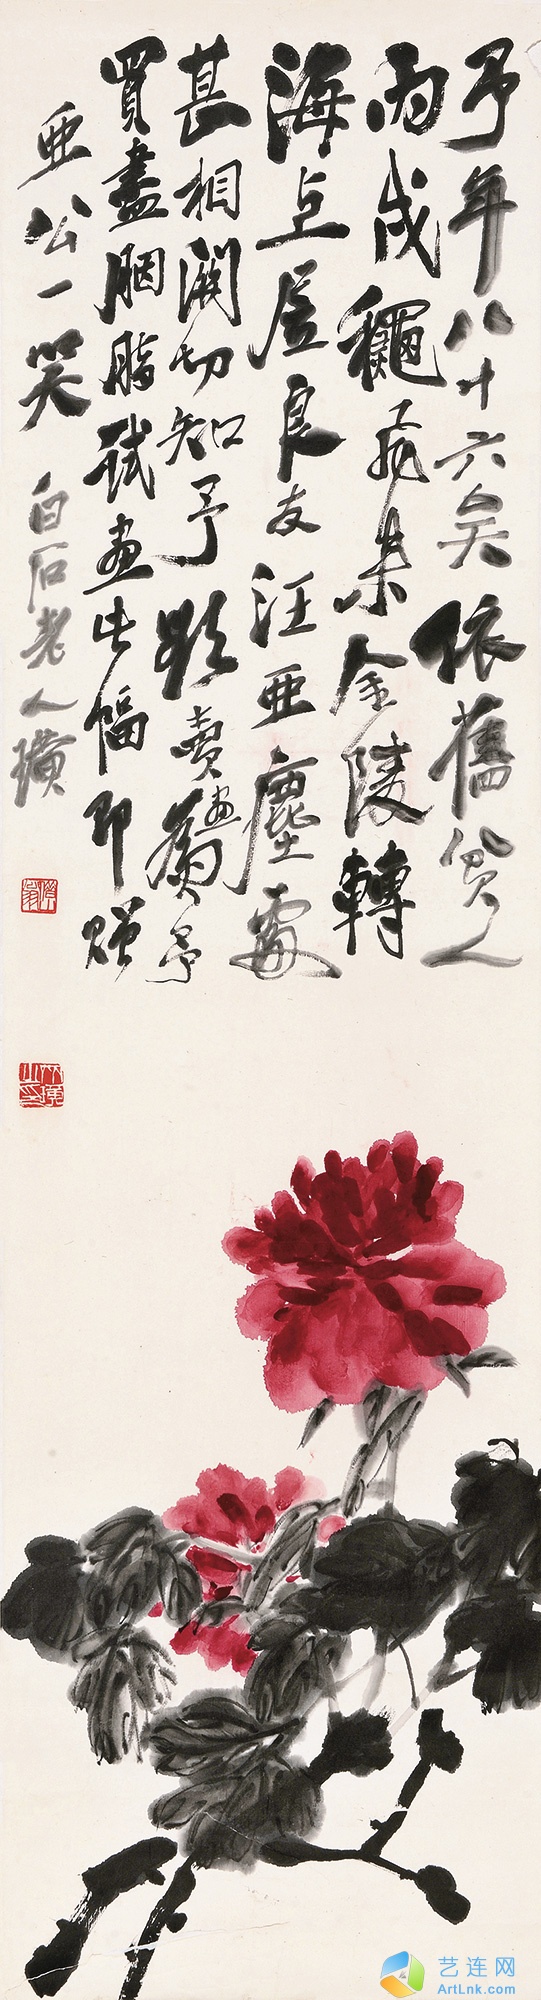 予年八十六矣依舊貧人
丙戌穐飛來金陵轉
海上居良友汪亞塵處
甚相關切知予賣畫為予
買盡胭脂試畫此幅即贈
亞公一笑
白石老人璜
艺连网
ArtLnk.com